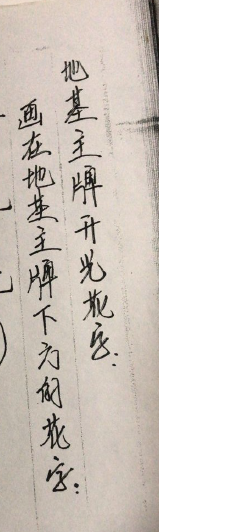 地基主牌开光花字：
画在地基主牌下方的花字：